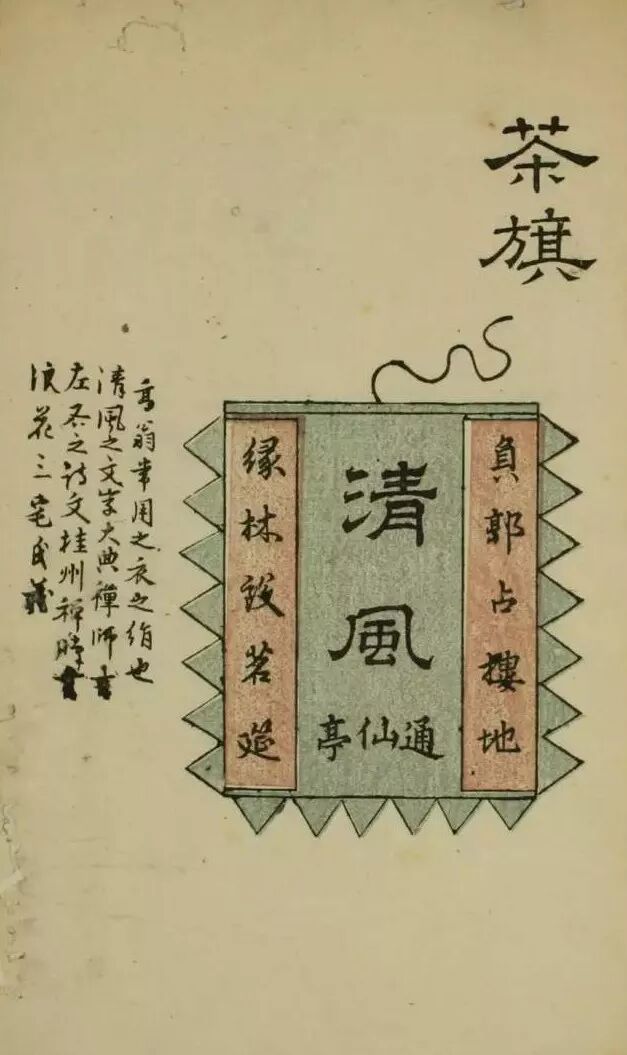 茶旗
負郭占樓地
清風
通仙亭
縁林設茗筵
高翁常用之衣之絹也
清風之文字大典禪師書
左右之詩文桂州禪師書
浪花三宅氏藏